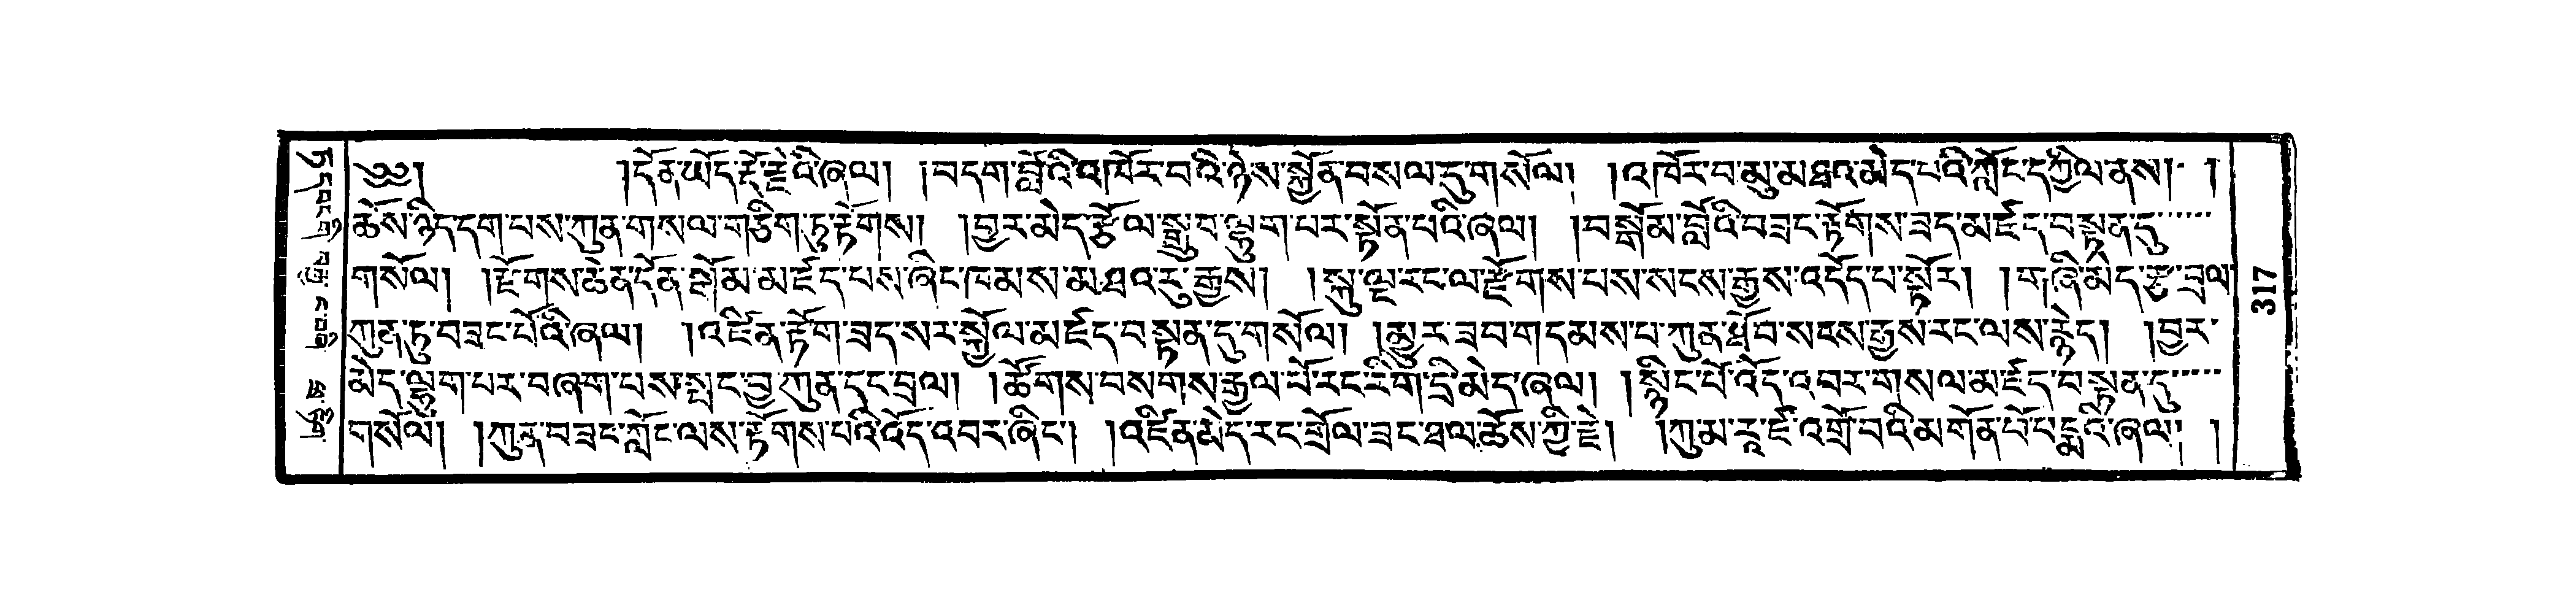 ༄༅། །དོན་ཡོད་རྡོ་རྗེའི་ཞལ། །བདག་བློའི་འཁོར་བའི་ཉེས་སྐྱོན་བསལ་དུ་གསོལ། །འཁོར་བ་མུ་མཐའ་མེད་པའི་ཀློང་དཀྱིལ་ནས། །
ཆོས་ཉིད་དག་པས་ཀུན་གསལ་གཅིག་ཏུ་རྟོགས། །བྱར་མེད་རྩོལ་སྒྲུབ་ལྷུག་པར་སྟོན་པའི་ཞལ། །བསྒོམ་བློའི་བཟང་རྟོགས་ཟད་མཛད་བསྟན་དུ་་་་་
གསོལ། །རྫོགས་ཆེན་དོན་སྡོམ་མཛད་པས་ཞིང་ཁམས་མཐའ་རུ་རྒྱས། །སྐུ་ལྔ་རང་ལ་རྫོགས་པས་སངས་རྒྱས་འདོད་པ་སྟོར། །གཞི་མེད་རྩ་བྲལ་
ཀུན་ཏུ་བཟང་པོའི་ཞལ། །འཛིན་རྟོག་ཟད་སར་སྐྱོལ་མཛད་བསྟན་དུ་གསོལ། །མྱུར་ཟབ་གདམས་པ་ཀུན་ཐོབ་སངས་རྒྱས་རང་ལས་རྙེད། །བྱར་
མེད་ལྷུག་པར་བཞག་པས་སྤང་བྱ་ཀུན་དང་བྲལ། །ཚོགས་བསགས་རྒྱལ་པོ་རང་རིག་དྲི་མེད་ཞལ། །སྙིང་པོ་འོད་འབར་གསལ་མཛད་བསྟན་དུ་་་་་
གསོལ། །ཀུན་བཟང་ཀློང་ལས་རྟོགས་པའི་འོད་འབར་ཞིང་། །འཛིན་མེད་རང་གྲོལ་ཟང་ཐལ་ཆོས་ཀྱི་རྗེ། །ཀུ་མ་རཱ་ཛ་འགྲོ་བའི་མགོན་པོ་པདྨའི་ཞལ། །
317